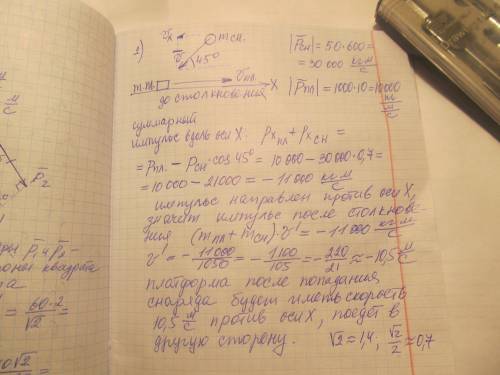 2) v̄ₓ m сн.
v̄ 45°
m пл. v̄ пл. X
до столкновения
|P̄сн| = 50·600 =
= 30 000 кг·м/с
|P̄пл| = 1000·10 = 10000 кг·м/с
суммарный
импульс вдоль оси X: Pxпл + Pxсн =
= Pпл. − Pсн·cos 45° = 10 000 − 30 000·0,7 =
= 10 000 − 21000 = − 11 000 кг·м/с
импульс направлен против оси X,
значит импульс после столкнове-
ния (mпл + mсн)·v' = − 11 000 кг·м/с
v' = − 11000/1050 = − 1100/105 = − 220/21 ≈ − 10,5 м/с
платформа после попадания
снаряда будет иметь скорость
10,5 м/с против оси X, поедет в
другую сторону. √2 = 1,4, √2/2 ≈ 0,7
м/с
P̄₂
P̄₁ и P̄₂ −
квадрата
= 60·2/√2 =